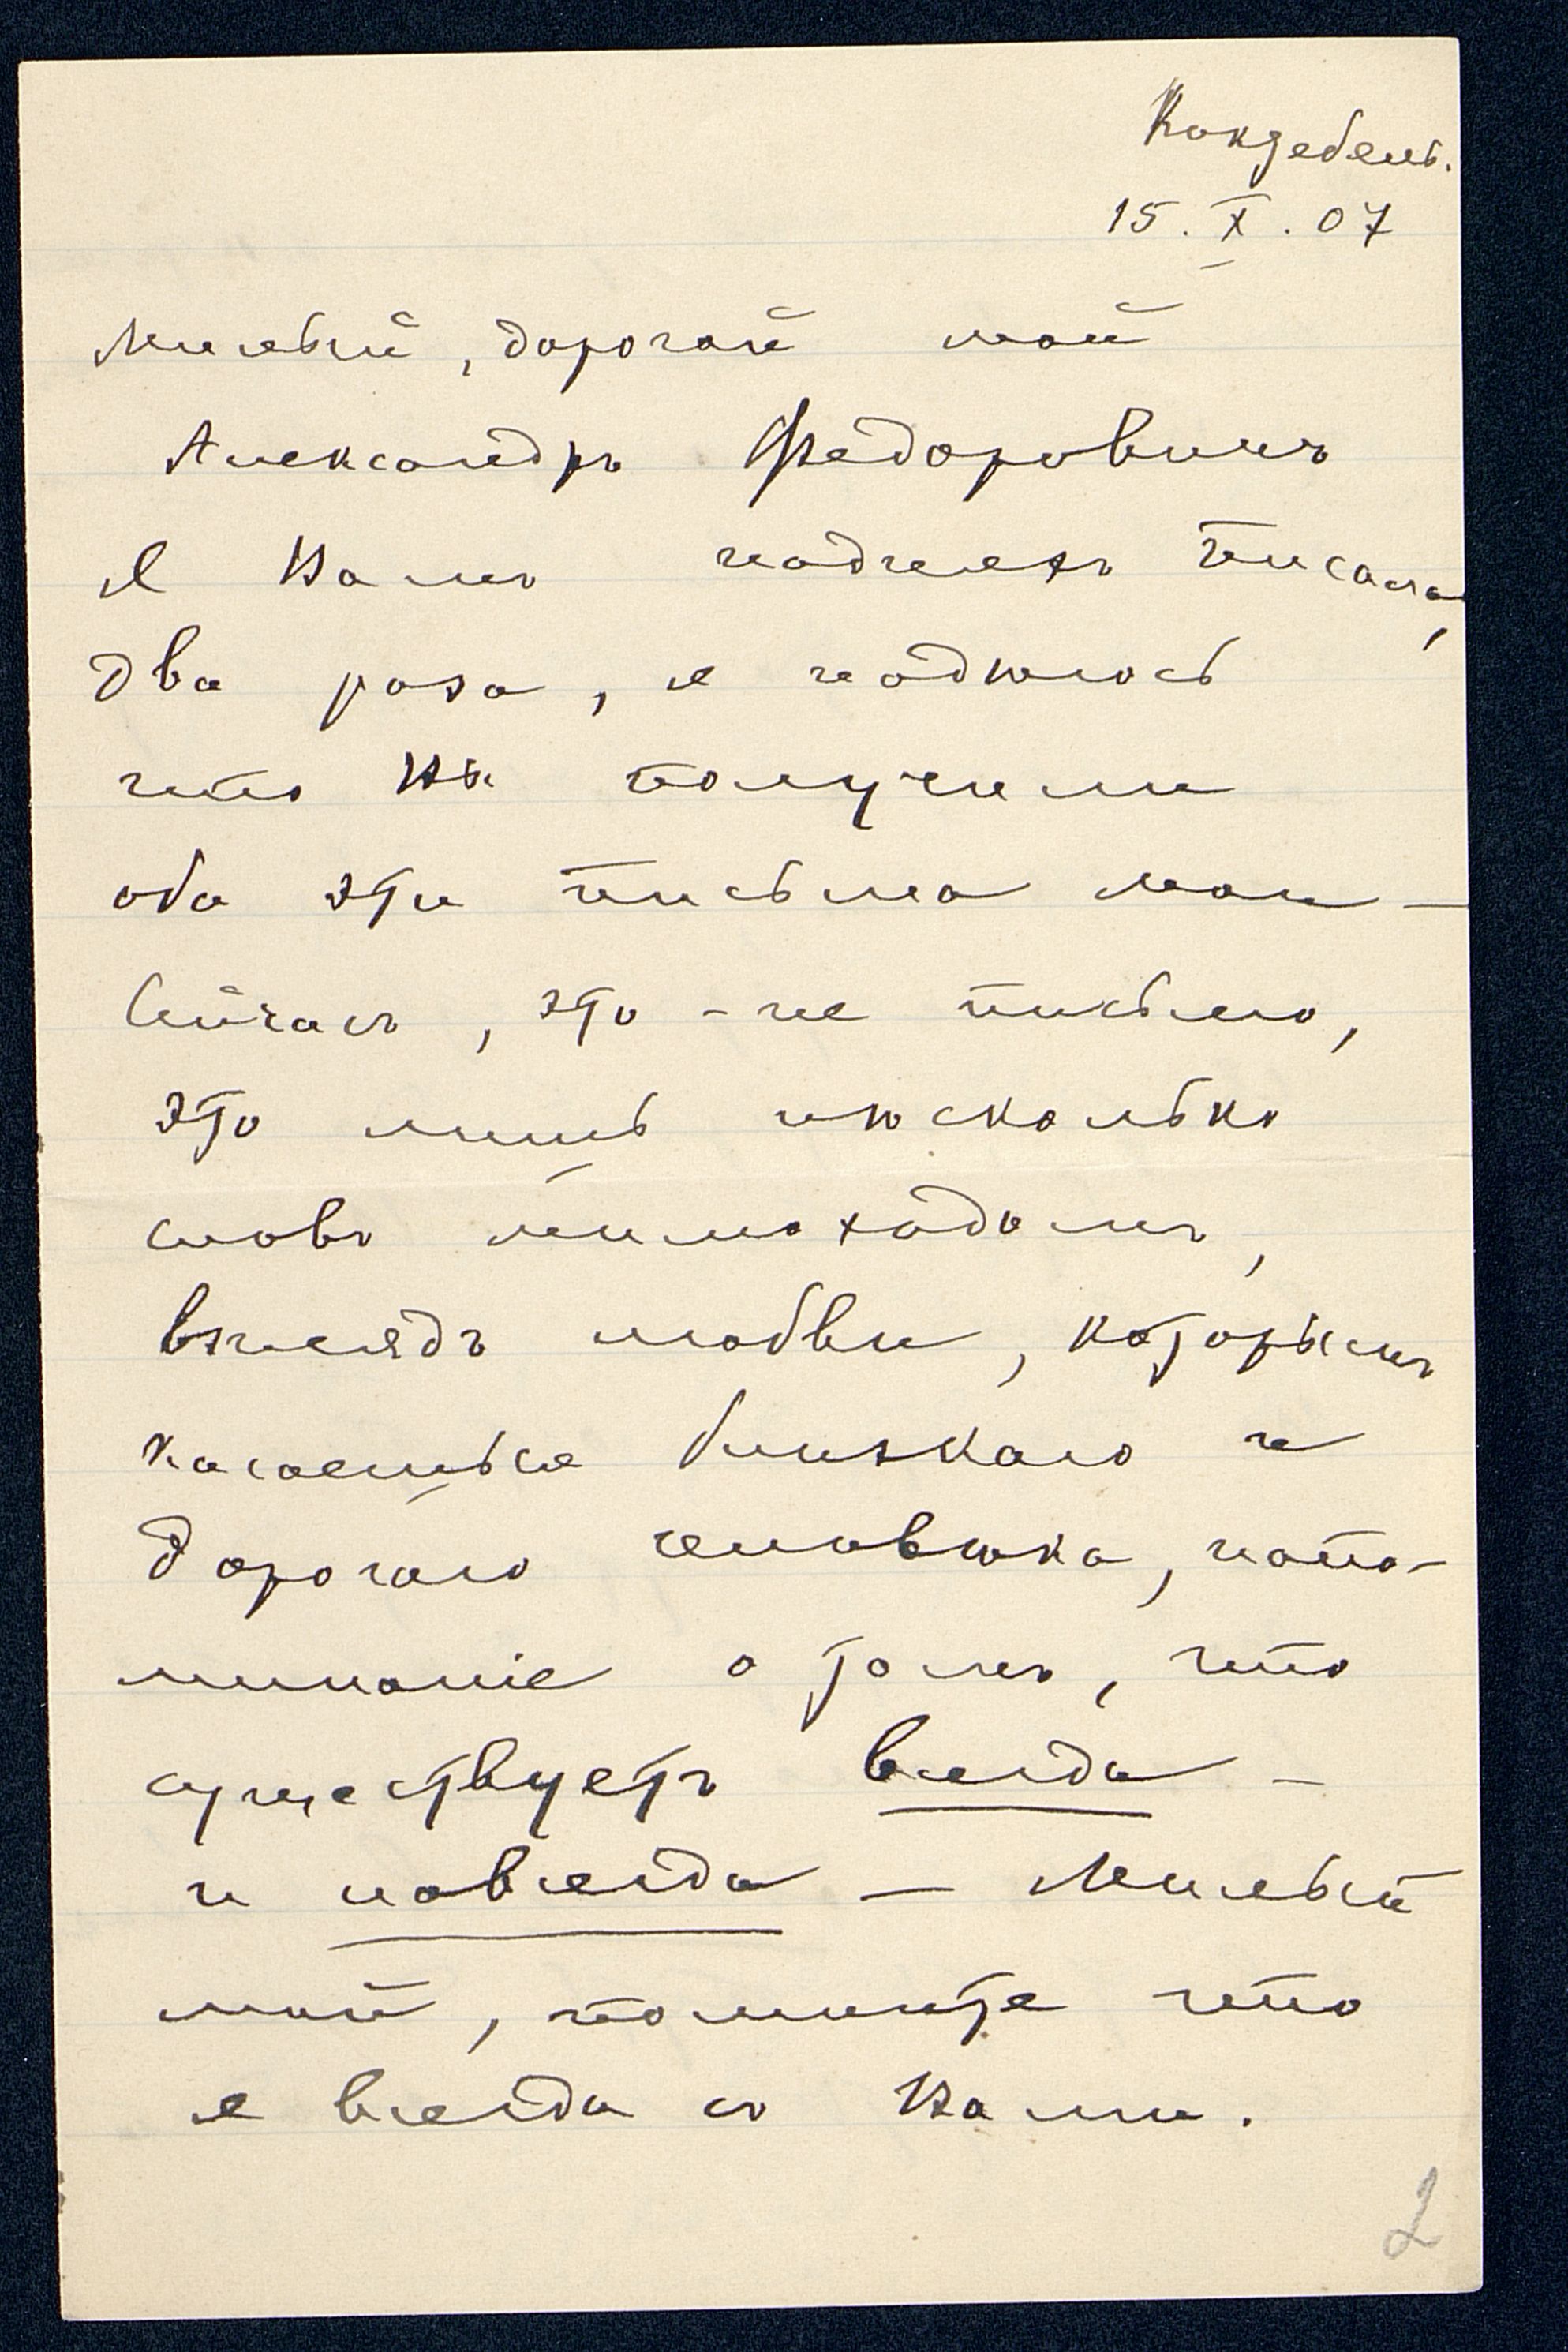 Коктебель.
15. X. 07
Милый, дорогой мой
Александръ Федоровичъ
Я Вамъ надняхъ писала,
два раза, я надѣюсь
что Вы получили
оба эти письма мои —
Сейчасъ, это – не письмо,
это лишь нѣсколько
словъ мимоходомъ,
взглядъ любви, которымъ
касаешься близкаго и
дорогаго человѣка, напо-
минаніе о томъ, что
существуетъ всегда —
и навсегда — Милый
мой, помните что
я всегда съ Вами.
2